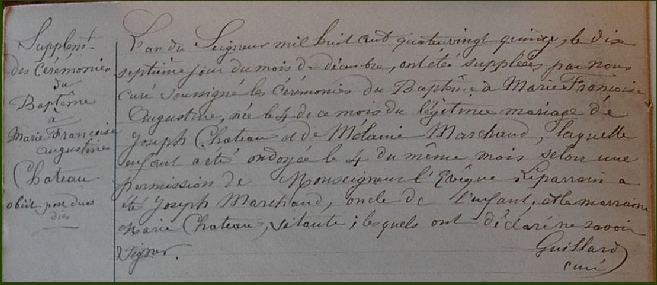 Supplemt
des Cérémonies
du
Baptême
à
Marie Françoise
Augustine
Chateau
L'an du Seigneur mil huit cent quatre vingt quinze, le dix
septième jour du mois de décembre, ont été suppléés, par nous
curé soussigné les cérémonies du Baptême à Marie Françoise
Augustine, née le 4 de ce mois du légitime mariage de
Joseph Chateau et de Mélanie Marchand, laquelle
enfant a été ondoyée le 4 du même mois selon une
permission de Monseigneur l'Evêque. Le parrain a
été Joseph Marchand, oncle de l'enfant, et la marraine
Marie Chateau, sa tante ; lesquels ont déclaré ne savoir
signer.
Guillard
curé